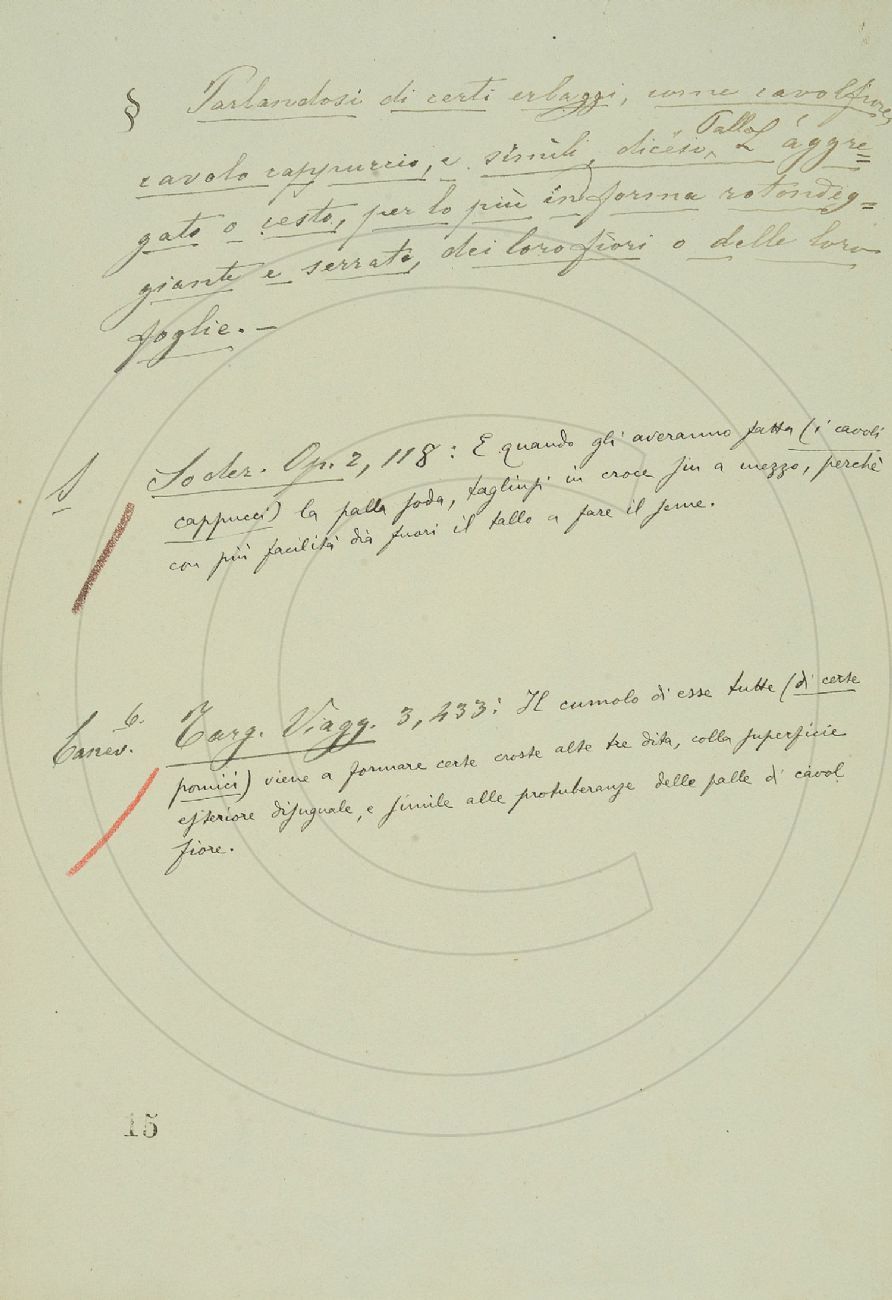 § Parlandosi di certi erbaggi, come cavolfiore,
cavolo cappuccio, e simili, dicesi Palla L'aggre=
gato o cesto, per lo più in forma rotondeg=
giante e serrata, dei loro fiori o delle loro
foglie. —
S Soder. Op. 2, 118: E quando gli averanno fatta (i cavoli
cappucci) la palla soda, taglinsi in croce sin a mezzo, perchè
con più facilità dia fuori il tallo a fare il seme.
Targ. Viagg. 3, 433: Il cumolo di esse tutte (di certe
pomici) viene a formare certe croste alte tre dita, colla superficie
esteriore disuguale, e simile alle protuberanze delle palle di cavol
fiore.
15